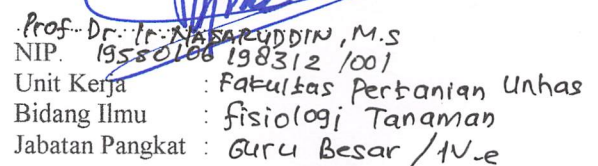 Prof. Dr. Ir. NASARUDDIN, M.S
NIP. 19550106 198312 1001
Unit Kerja : Fakultas Pertanian Unhas
Bidang Ilmu : fisiologi Tanaman
Jabatan Pangkat : Guru Besar / IV-e